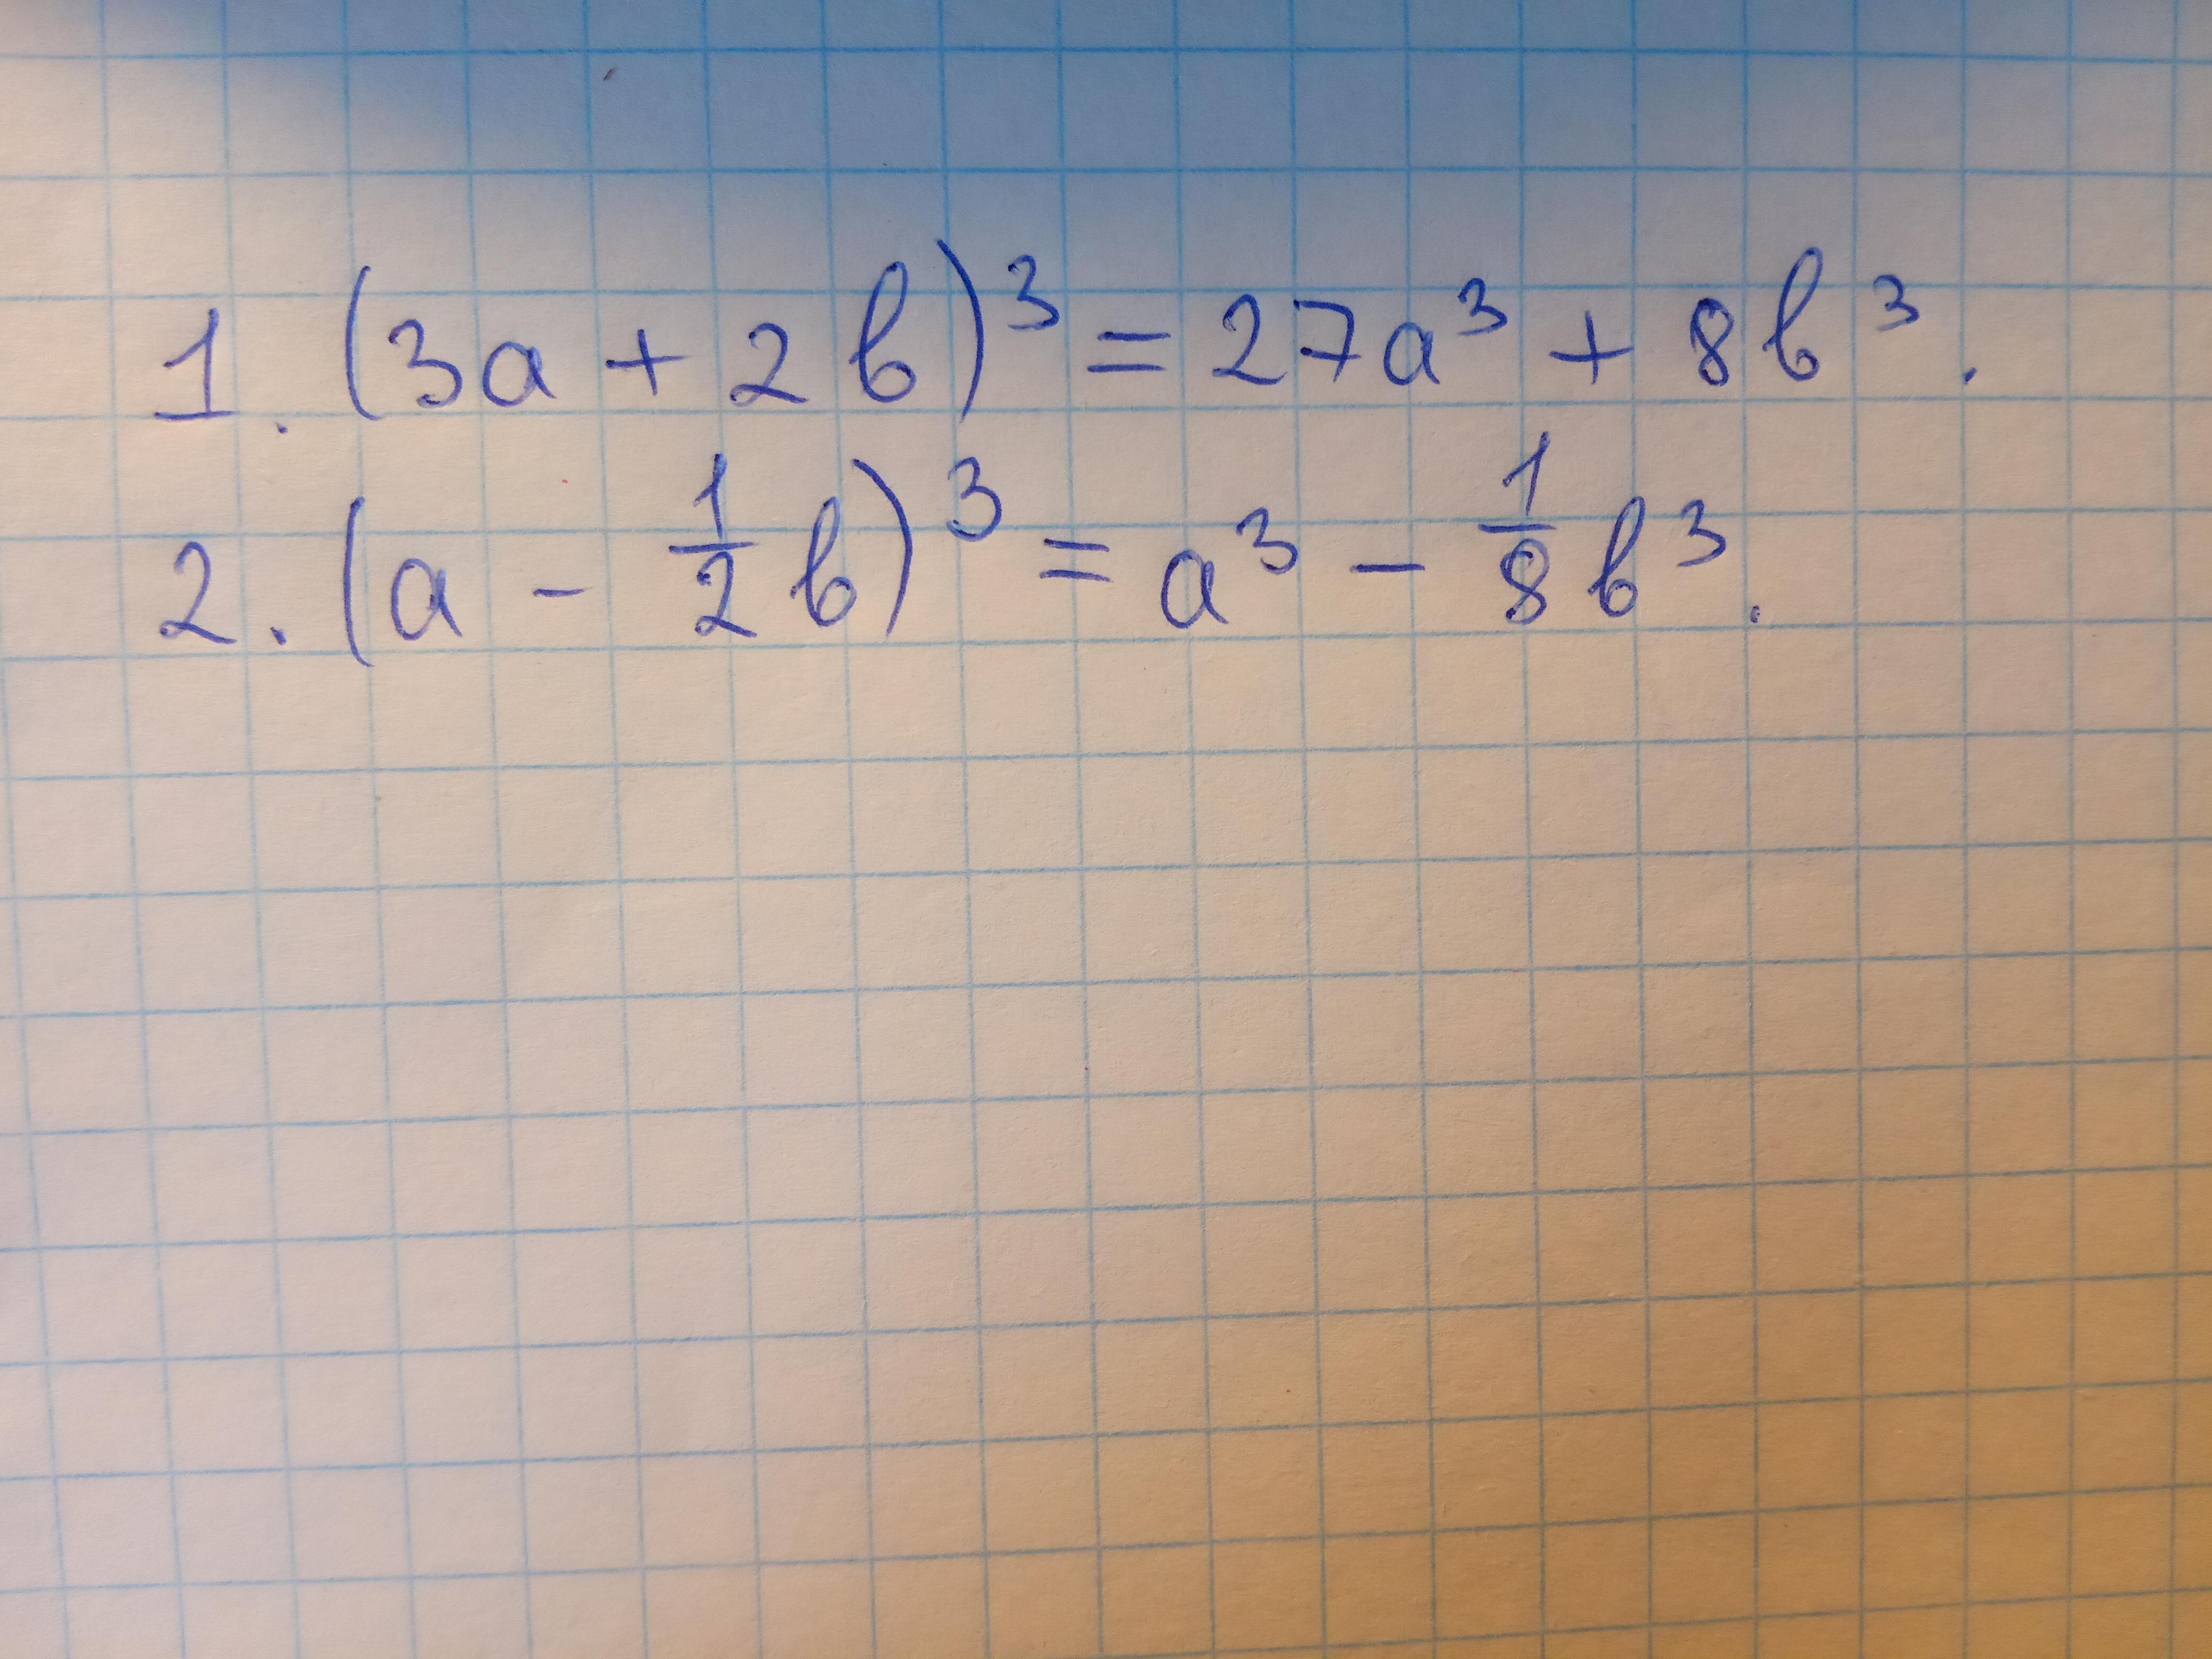 1. (3a + 2b)³ = 27a³ + 8b³.
2. (a - 1/2 b)³ = a³ - 1/8 b³.